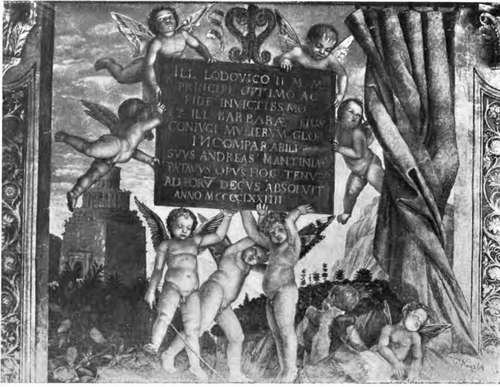 ILL. LODOVICO II M M
PRINCIPI OPTIMO AC
FIDE INVICTISSIMO
ET ILL. BARBARAE EIVS
CONIVGI MVLIERVM GLOR
INCOMPARABILI
SVVS ANDREAS MANTINIA
PATAVVS OPVS HOC TENVE
AD EORV DECVS ABSOLVIT
ANNO MCCCCLXXIIII